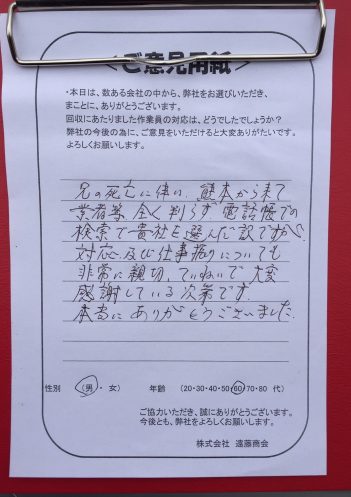 ＜ご意見用紙＞
・本日は、数ある会社の中から、弊社をお選びいただき、
まことに、ありがとうございます。
回収にあたりました作業員の対応は、どうでしたでしょうか？
弊社の今後の為に、ご意見をいただけると大変ありがたいです。
よろしくお願いします。
兄の死亡に伴い、熊本から来て
業者等、全く判らず電話帳での
検索で貴社を選んだ訳ですが、
対応及び仕事振りについても
非常に親切、ていねいで大変
感謝している次第です。
本当にありがとうございました。
性別 (男・女) 年齢 (20・30・40・50・60・70・80 代)
ご協力いただき、誠にありがとうございます。
今後とも、弊社をよろしくお願いします。
株式会社 遠藤商会